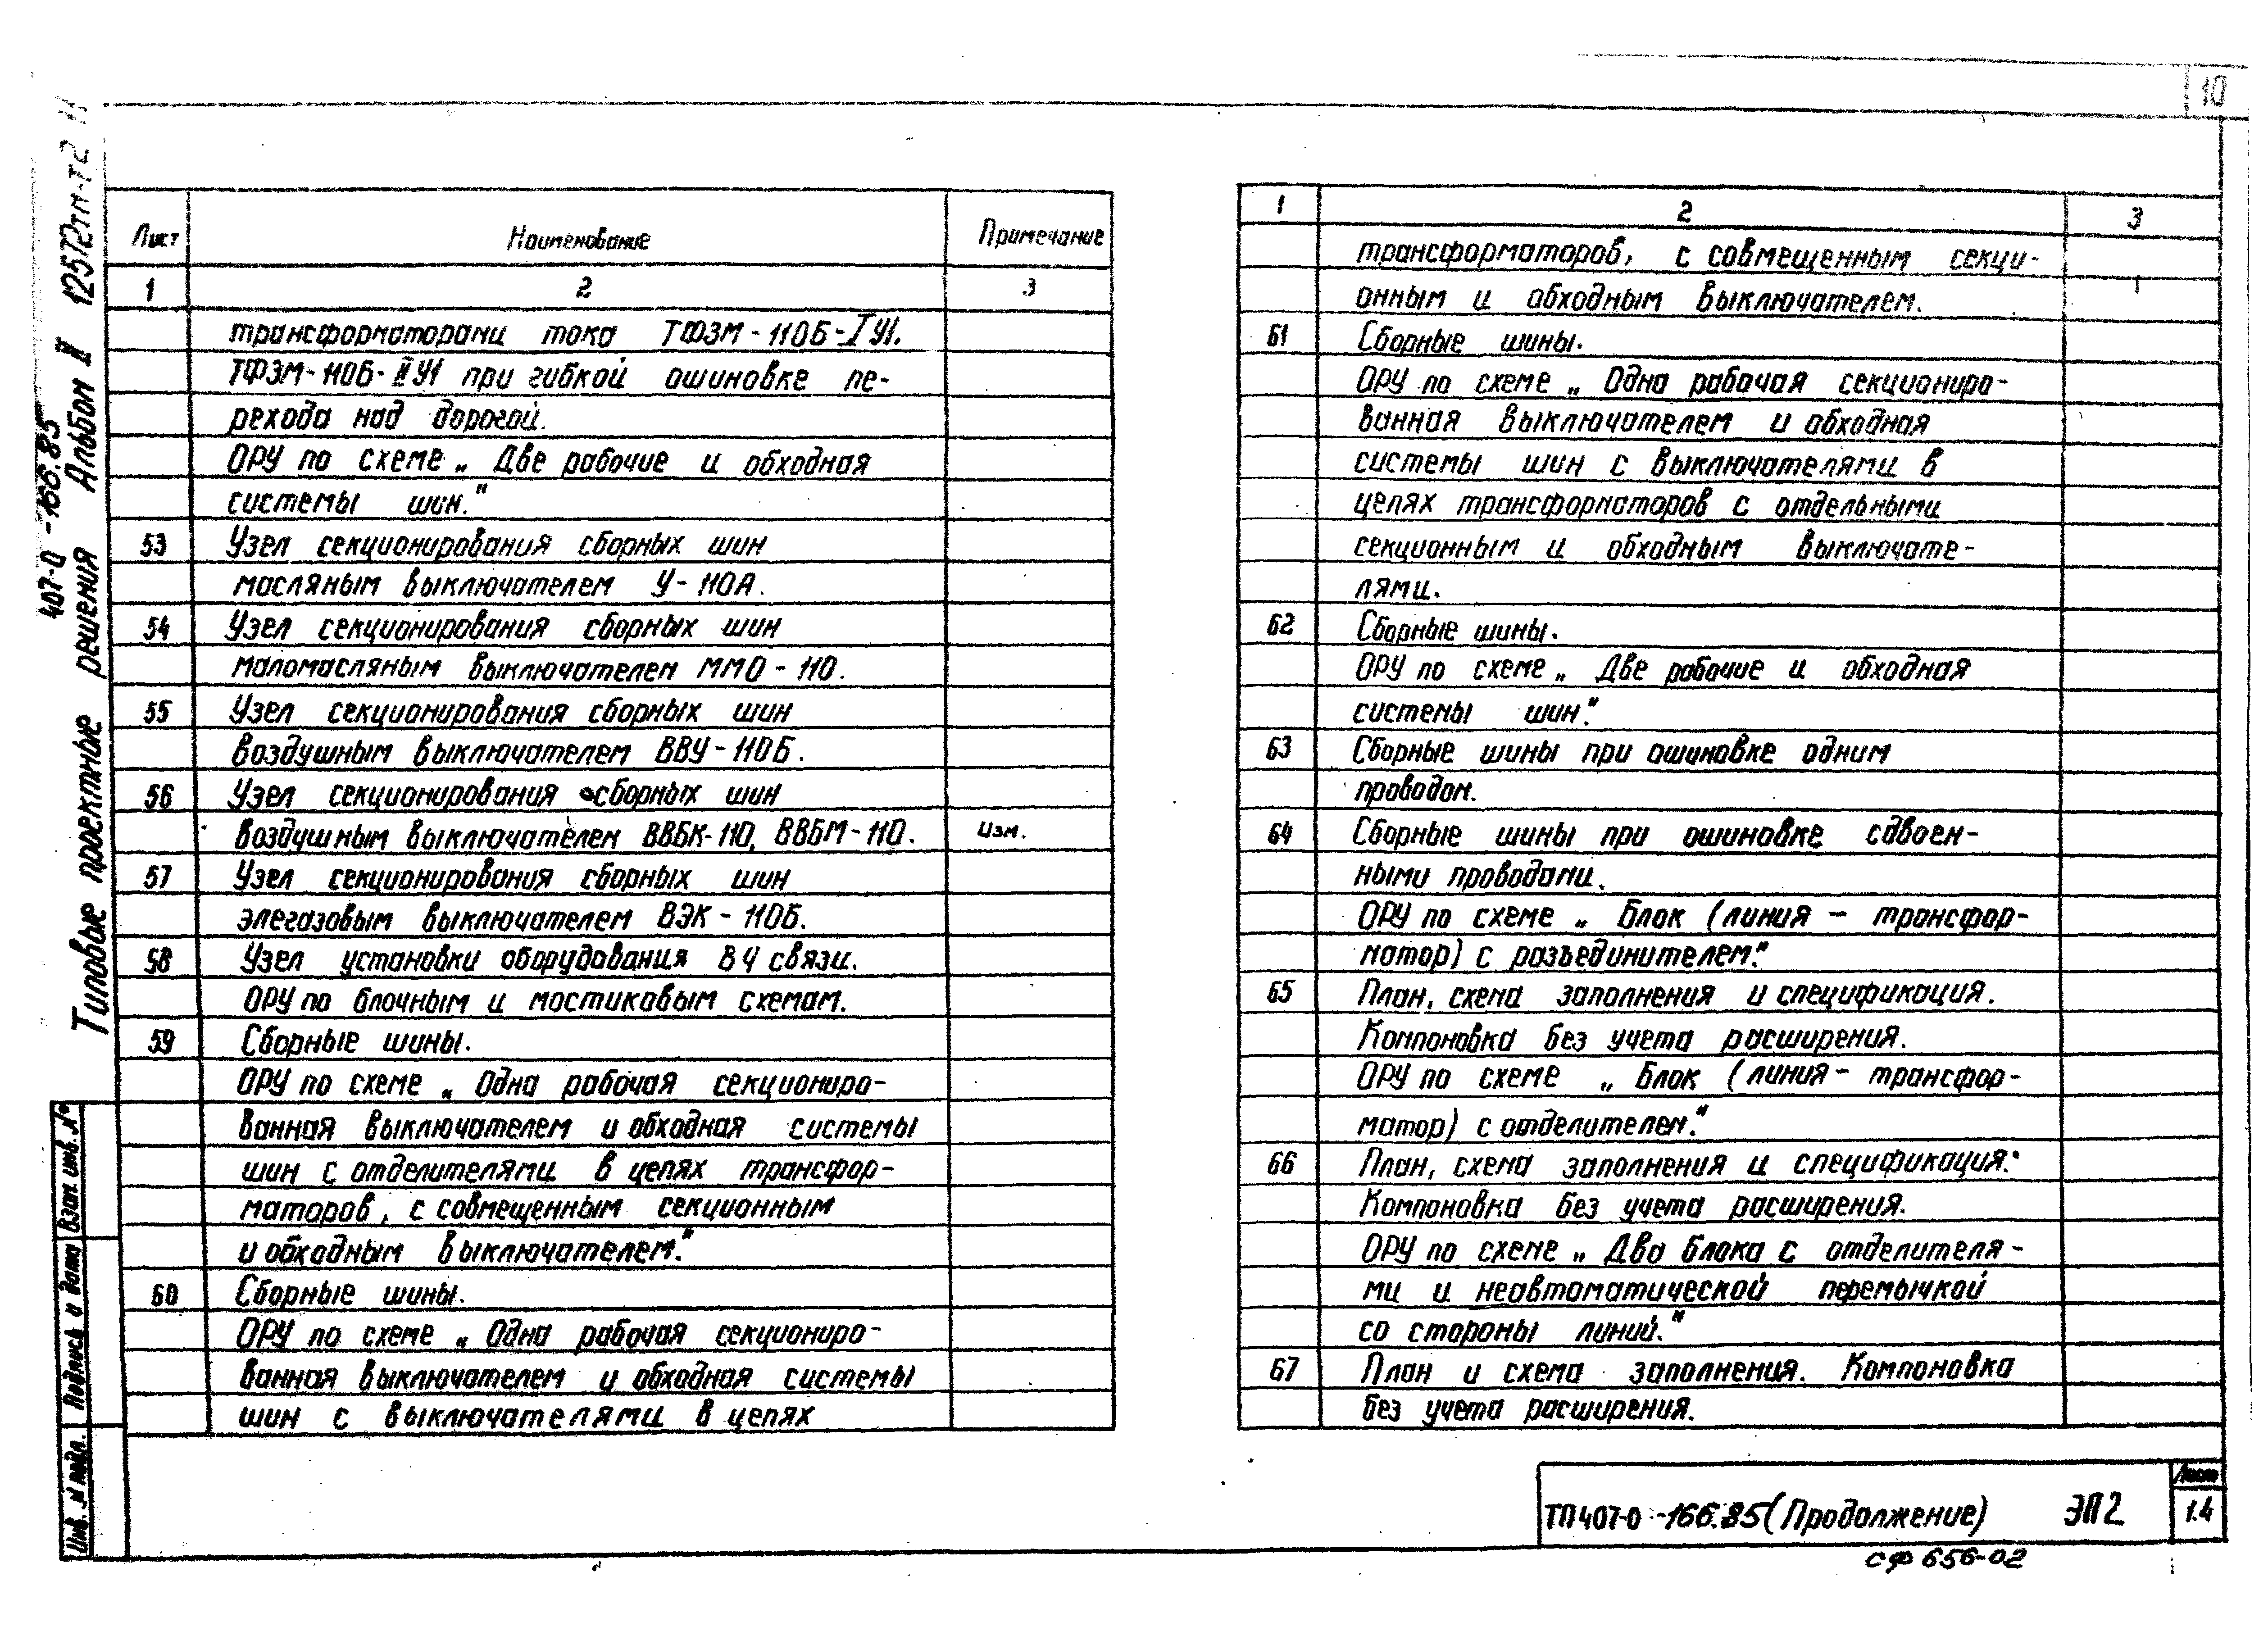 10
407-0-166.85
Типовые проектные решения Альбом II 12572тм-т2
Лист Наименование Примечание
1 2 3
трансформаторами тока ТФЗМ-110Б-IУ1.
ТФЗМ-110Б-IIУ1 при гибкой ошиновке пе-
рехода над дорогой.
ОРУ по схеме „Две рабочие и обходная
системы шин."
53 Узел секционирования сборных шин
масляным выключателем У-110А.
54 Узел секционирования сборных шин
маломасляным выключателем ММО-110.
55 Узел секционирования сборных шин
воздушным выключателем ВВУ-110Б.
56 Узел секционирования сборных шин
воздушным выключателем ВВБК-110, ВВБМ-110. Изм.
57 Узел секционирования сборных шин
элегазовым выключателем ВЭК-110Б.
58 Узел установки оборудования ВЧ связи.
ОРУ по блочным и мостиковым схемам.
59 Сборные шины.
ОРУ по схеме „Одна рабочая секциониро-
ванная выключателем и обходная системы
шин с отделителями в цепях трансфор-
маторов, с совмещенным секционным
и обходным выключателем."
60 Сборные шины.
ОРУ по схеме „Одна рабочая секциониро-
ванная выключателем и обходная системы
шин с выключателями в цепях
1 2 3
трансформаторов, с совмещенным секци-
онным и обходным выключателем.
61 Сборные шины.
ОРУ по схеме „Одна рабочая секциониро-
ванная выключателем и обходная
системы шин с выключателями в
цепях трансформаторов с отдельными
секционным и обходным выключате-
лями.
62 Сборные шины.
ОРУ по схеме „Две рабочие и обходная
системы шин."
63 Сборные шины при ошиновке одним
проводом.
64 Сборные шины при ошиновке сдвоен-
ными проводами.
ОРУ по схеме „Блок (линия - трансфор-
матор) с разъединителем."
65 План, схема заполнения и спецификация.
Компоновка без учета расширения.
ОРУ по схеме „Блок (линия - трансфор-
матор) с отделителем."
66 План, схема заполнения и спецификация.
Компоновка без учета расширения.
ОРУ по схеме „Два блока с отделителя-
ми и неавтоматической перемычкой
со стороны линий."
67 План и схема заполнения. Компоновка
без учета расширения.
Взам. инв. №
Подпись и дата
Инв. № подл.
ТП 407-0-166.85 (Продолжение) ЭП2
Лист
1.4
СФ 656-02